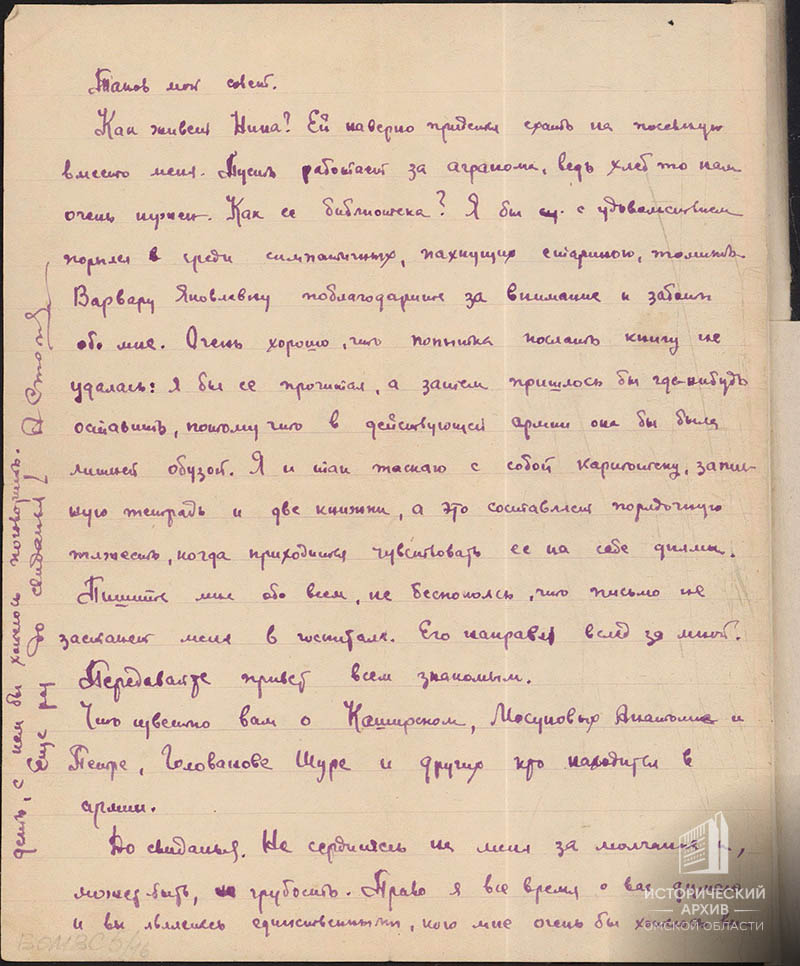 Таков мой совет.
Как живет Нина? Ей наверно придется ехать на посевную
вместо меня. Пусть работает за агранома, ведь хлеб то нам
очень нужен. Как ее библиотека? Я бы с удовольствием
порылся в среди симпатичных, пахнущих стариною, томиков.
Варвару Яковлевну поблагодарите за внимание и заботы
обо мне. Очень хорошо, что попытка послать книгу не
удалась: я бы ее прочитал, а затем пришлось бы где-нибудь
оставить, потому что в действующей армии она бы была
лишней обузой. Я и так таскаю с собой картотеку, запис-
ную тетрадь и две книжки, а это составляет порядочную
тяжесть, когда приходится чувствовать ее на себе днями.
Пишите мне обо всем, не беспокоясь, что письмо не
застанет меня в госпитале. Его направят вслед за мной.
Передавайте привет всем знакомым.
Что известно вам о Каширском, Мосуновых Анатолие и
Петре, Голованове Шуре и других кто находится в
армии.
До свиданья. Не сердитесь на меня за молчание и,
может быть, грубость. Право я все время о вас думаю
и вы являетесь единственными, кого мне очень бы
деть, с кем бы хотелось поговорить.
Еще раз до свиданья!
ИСТОРИЧЕСКИЙ
АРХИВ
ОМСКОЙ ОБЛАСТИ